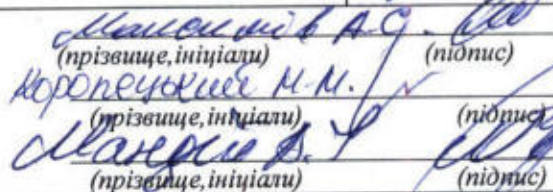 А.С.
(прізвище,ініціали) (підпис)
Коропецький М.М.
(прізвище,ініціали) (підпис)
(прізвище,ініціали) (підпис)